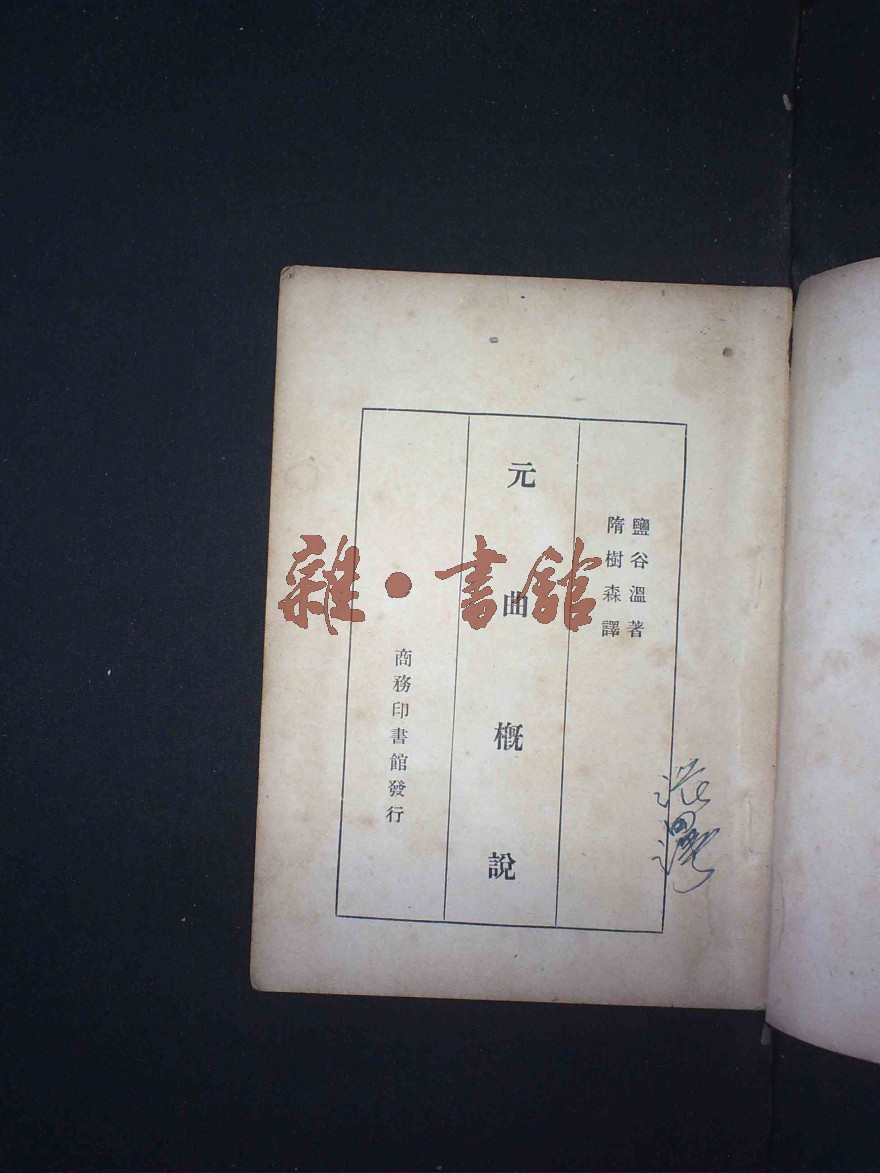 鹽谷溫著
隋樹森譯
元曲概說
商務印書館發行
雜·書館